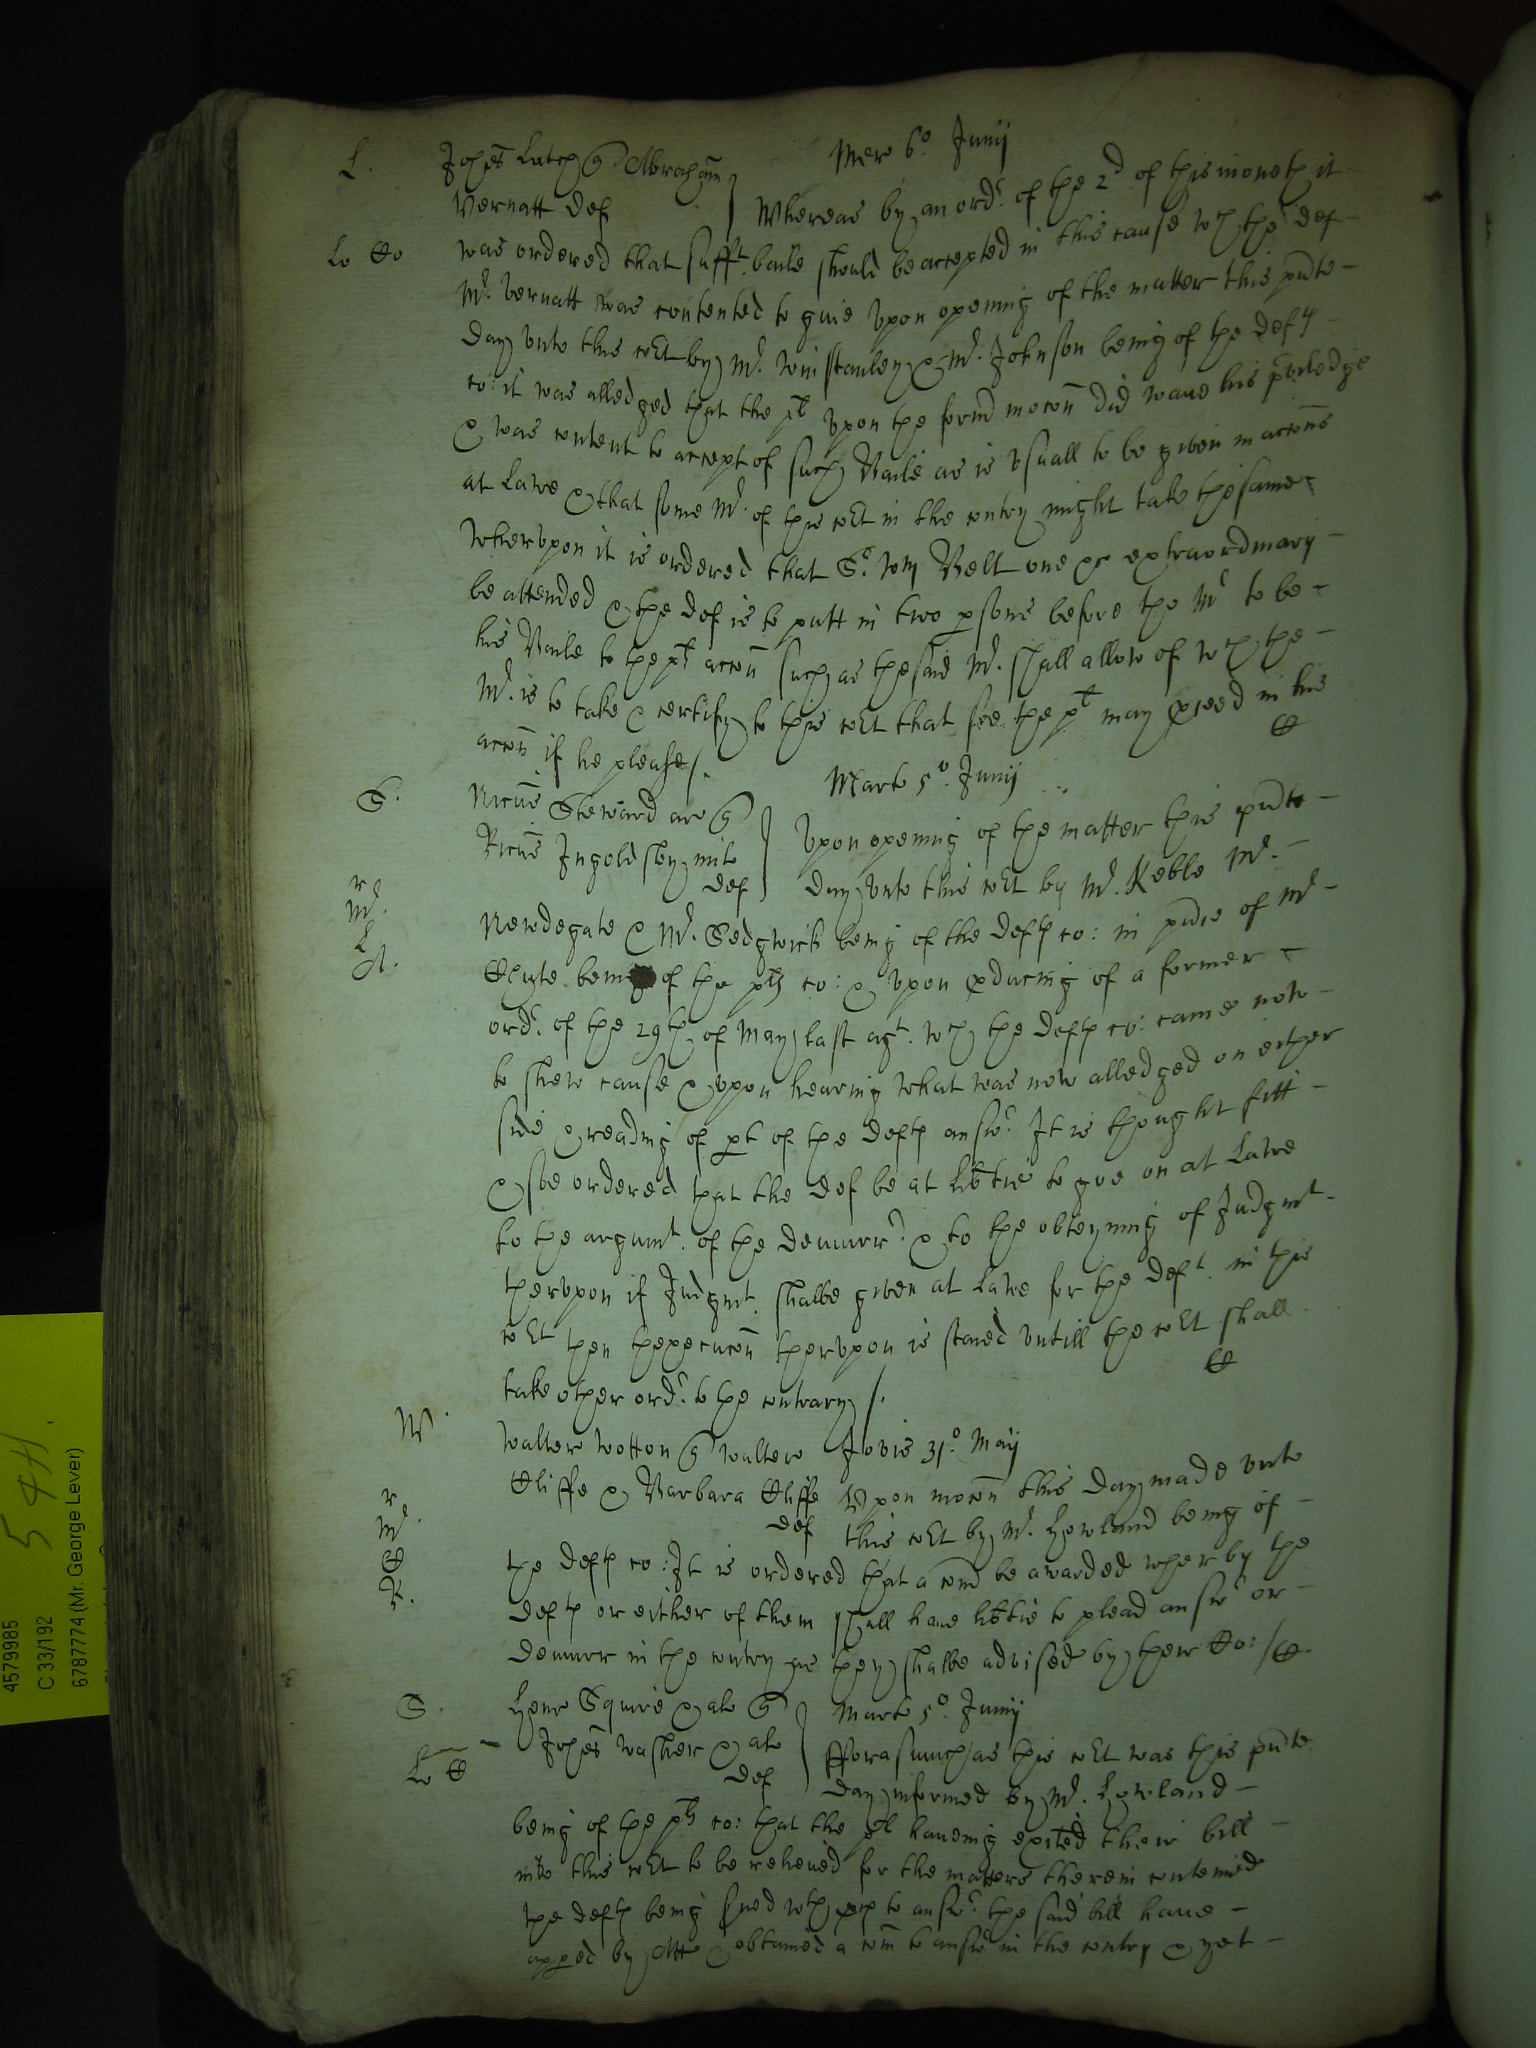 Mer 6o Junij
L. Johes Latch q Abraham
Vernatt def Whereas by an ordr. of the 2d of this moneth it
Lo Co was ordered that sufft. baile should be accepted in this cause wch the def
Mr. Vernatt was contented to give Vpon opening of the matter this pnte
day vnto this cort by Mr. Winstanley & Mr. Johnson being of the defts
co: it was alledged that the plt vpon the formr mocon did waue his priledge
& was content to accept of such Baile as is vsuall to be given in accons
at Lawe & that some Mr. of this cort in the contry might take the same
Whervpon it is ordered that Sr. Wm Belt one &c extraordinary
be attended & the def is to putt in two psons before the Mr to be
his Baile to the plts accon such as the said Mr. shall allow of wch the
Mr. is to take & certify to this cort that soe the plt may pceed in his
accon if he please /. C
S. Marte 5o Junij
Nicus Steward ar q
Ricus Ingoldsby mil Vpon opening of the matter this pnte
def day vnto this cort by Mr. Keble Mr.
r
Mr. Newdegate & Mr. Sedgwick being of the defts co: in pnce of Mr
L
A. Chute being of the plts co: & vpon pducing of a former
ordr. of the 29th of May last agt. wch the defts co: came now
to shew cause & vpon hearing what was now alledged on either
side & reading of pt of the defts answr. It is thought fitt
& soe ordered that the def be at libtie to goe on at Lawe
to the argumt. of the demurr. & to the obteyning of Judgmt
thervpon if Judgmt. shalbe given at Lawe for the deft. in this
cort then thexecucon thervpon is staied vntill the cort shall
take other ordr. to the contrary /. C
W. Walter Wotton q Walter Jovis 31o. Maij
Cliffe & Barbara Cliffe Vpon mocon this day made vnto
r
Mr. def this cort by Mr. Howland being of
C the defts co: It is ordered that a com be awarded wherby the
R. defts or either of them shall haue libtie to plead answr or
demurr in the contry as they shalbe advised by their Co: /C.
S. Henr Squire & al q Marte 5o Junij
Johes Washer & al
Lo C fforasmuch as this cort was this pnte
def day informed by Mr. Howland
being of the plts co: that the plt haueing exited their bill
into this cort to be releiued for the matters therein conteined
the defts being srued wth pces to answr. the said bill haue
appred by Att & obtained a com to answr in the contry & yet
4579985
C 33/192
6787774 (Mr. George Lever)